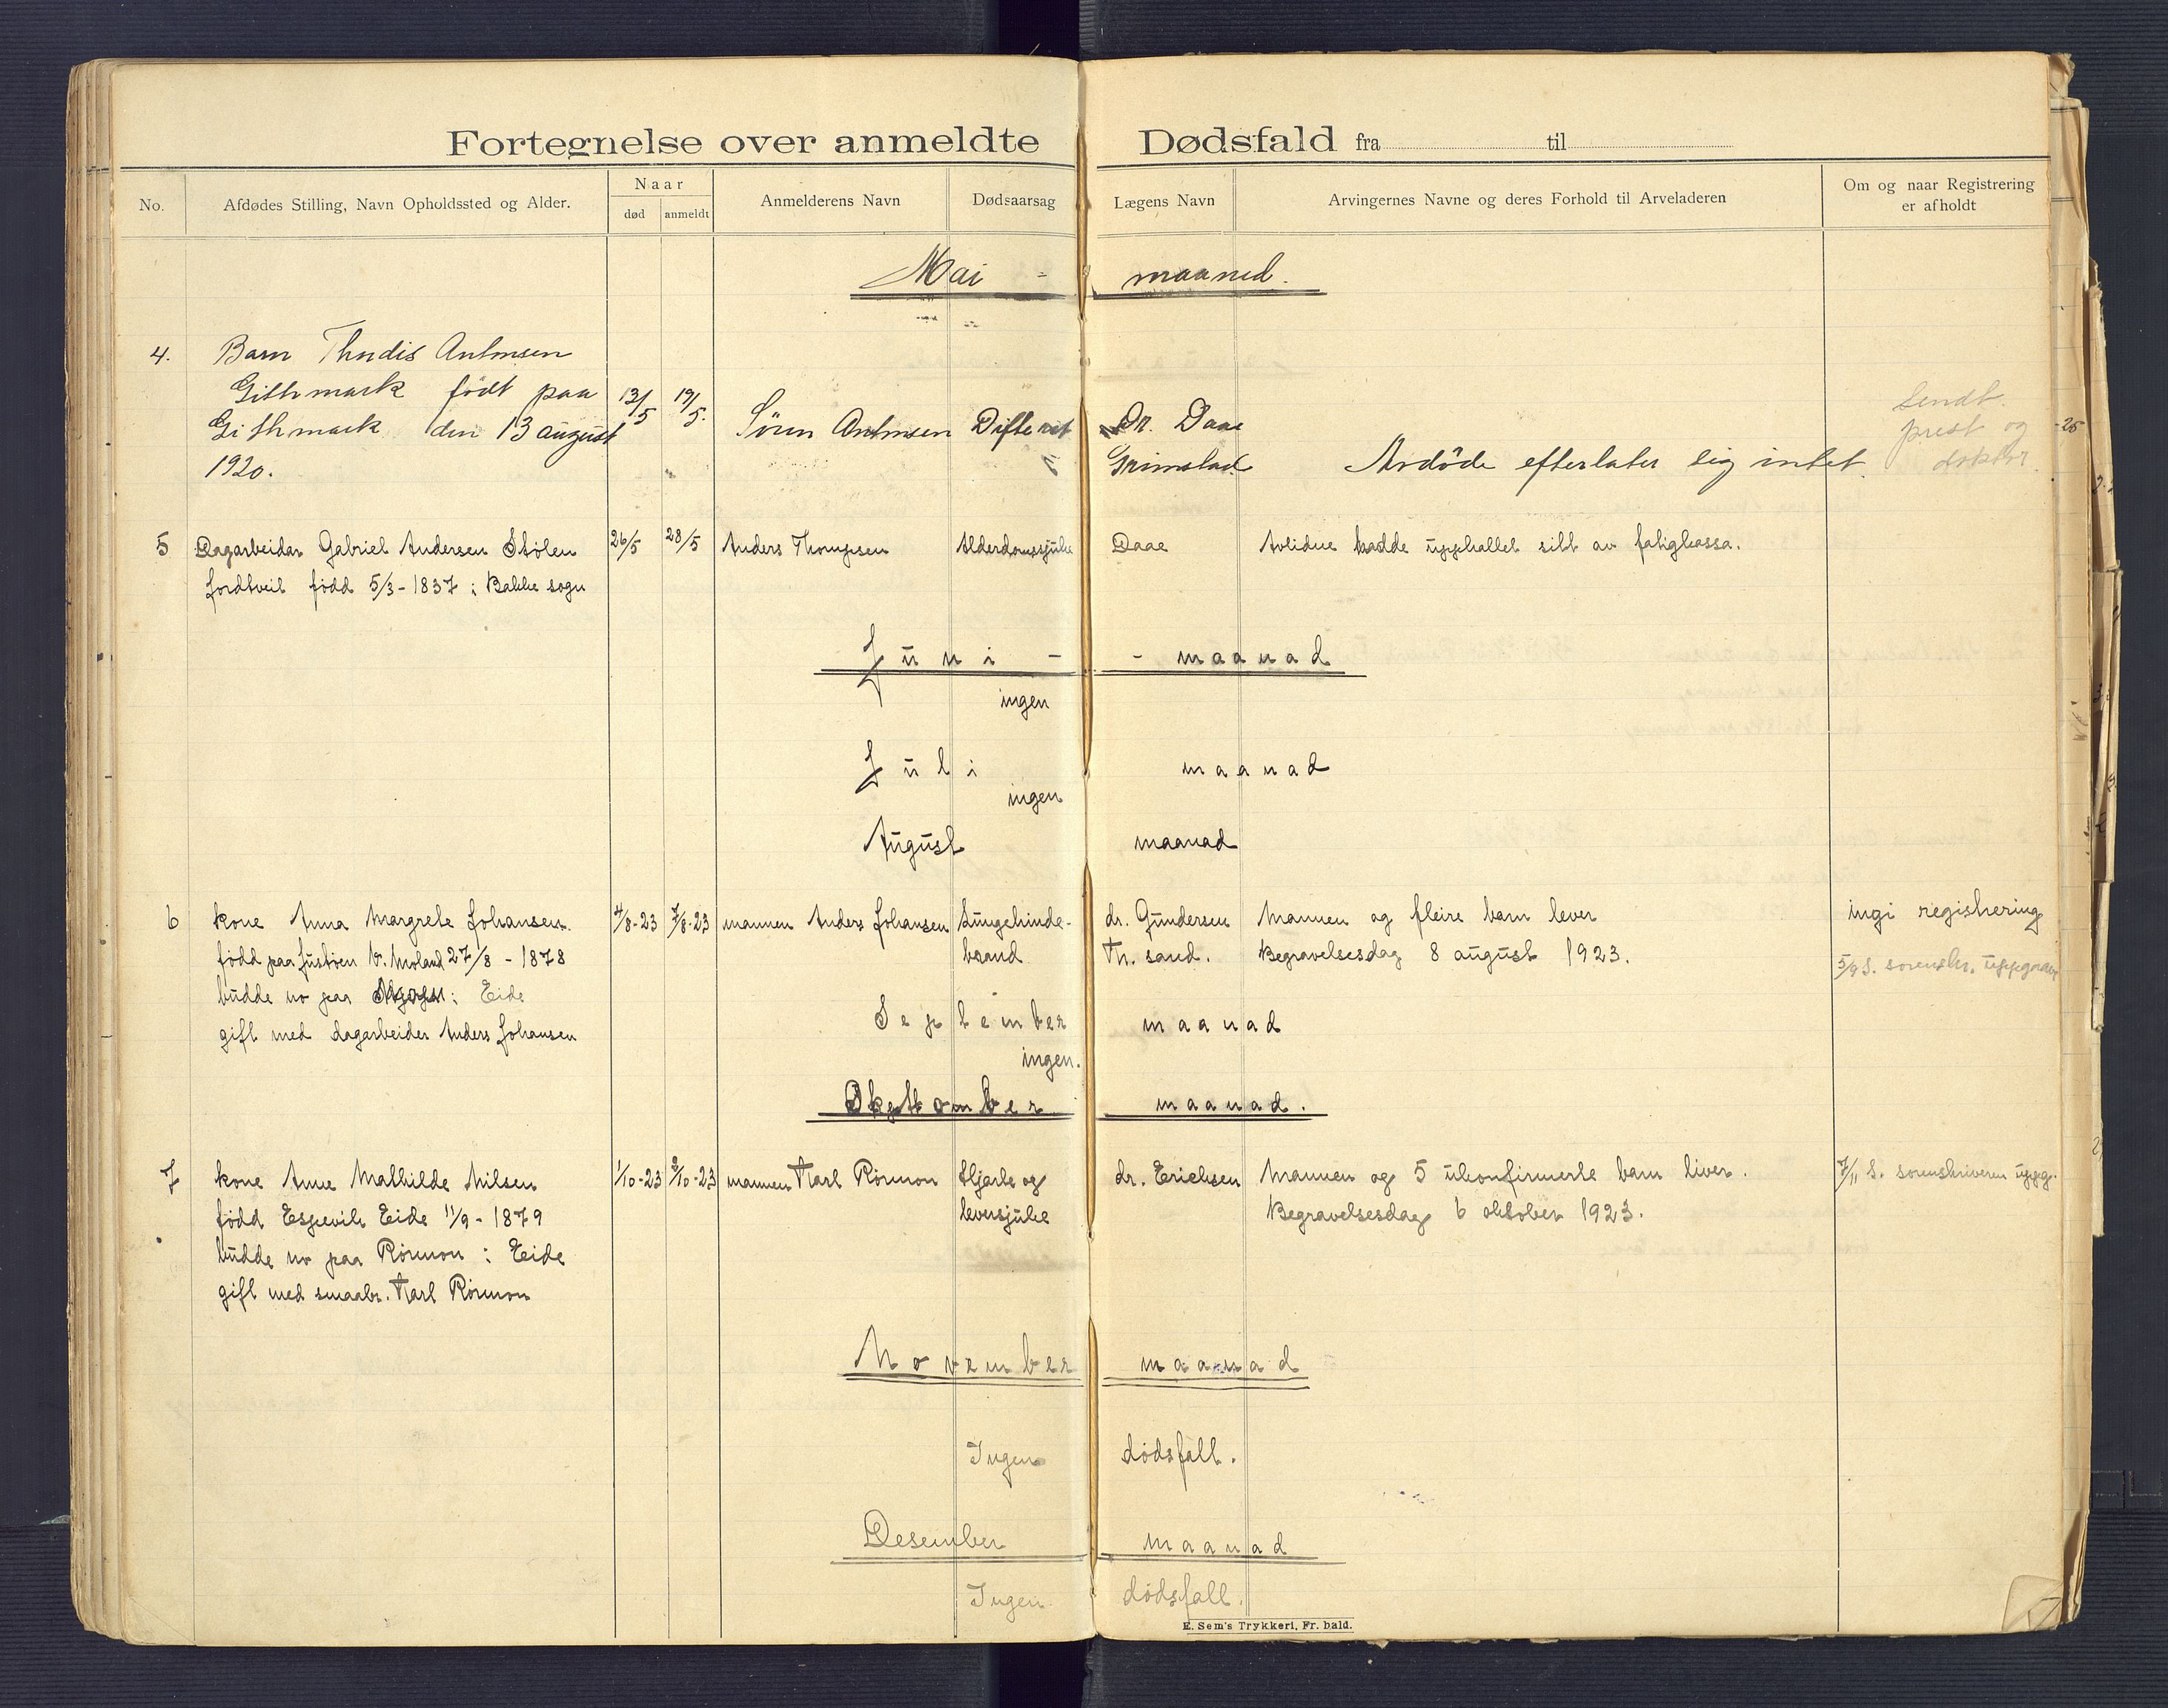 Fortegnelse over anmeldte Dødsfald fra til
No. Afdødes Stilling, Navn Opholdssted og Alder. Naar død anmeldt Anmelderens Navn Dødsaarsag Lægens Navn Arvingernes Navne og deres Forhold til Arveladeren Om og naar Registrering er afholdt
Mai - maaned.
4. Barn Thordis Antonsen
Githmark født paa
Githmark den 13 august
1920.
13/5 19/5.
Søren Antonsen Difterit
Dr. Daae
Grimstad
Avdøde efterlater sig intet.
Sendt
prest og
doktor.
5 Dagarbeidar Gabriel Andersen Stølen 26/5 28/5 Anders Thompsen Alderdomssjuke Daae Avlidne hadde upphallet sitt av fatigkassa.
fødd 5/3-1837 i Bakke sogn
Juni - - maanad
ingen
Juli maanad
ingen
August maanad
6 kone Anna Margrete Johansen. 4/8-23 7/8-23 mannen Anders Johansen Lungehinde- dr. Gundersen Mannen og fleire barn lever ingi registrering
fødd paa Justøen V. Moland 27/8 - 1878 brand Kr. sand. Begravelsesdag 8 august 1923. 5/9 S. sorenskr. uppgave
budde no paa i Eide
gift med dagarbeider Anders Johansen
September maanad
ingen.
Oktober maanad.
7 kone Anne Mathilde Nilsen 1/10-23 2/10-23 mannen Karl Rörmon Hjarte og dr. Erichsen Mannen og 5 ukonfirmerte barn liver. 7/11 S. sorenskriveren uppg.
fødd Espevik Eide 11/9 - 1879 leversjuke Begravelsesdag 6 oktober 1923.
budde no paa Rörmon i Eide
gift med smaabr. Karl Rörmon
November maanad
Ingen dødsfall.
Desember maanad
Ingen dødsfall.
E. Sem's Trykkeri, Fr. hald.